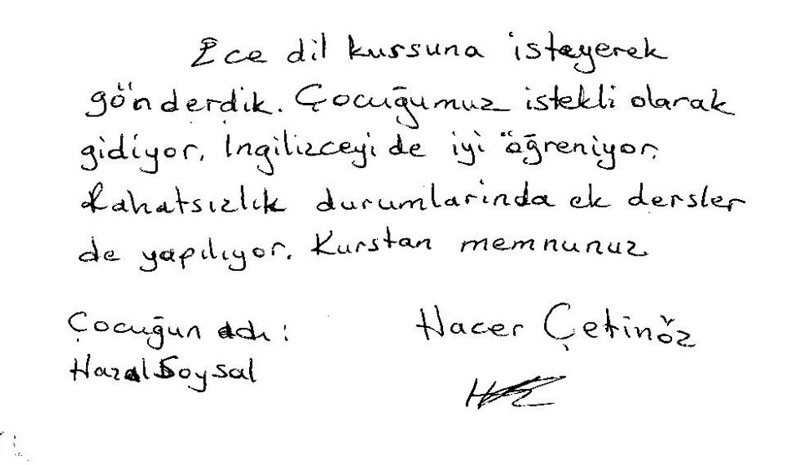 Ece dil kursuna isteyerek
gönderdik. Çocuğumuz istekli olarak
gidiyor. İngilizceyi de iyi öğreniyor.
Rahatsızlık durumlarında ek dersler
de yapılıyor. Kurstan memnunuz
Çocuğun adı: Hacer Çetinöz
Hazal Soysal